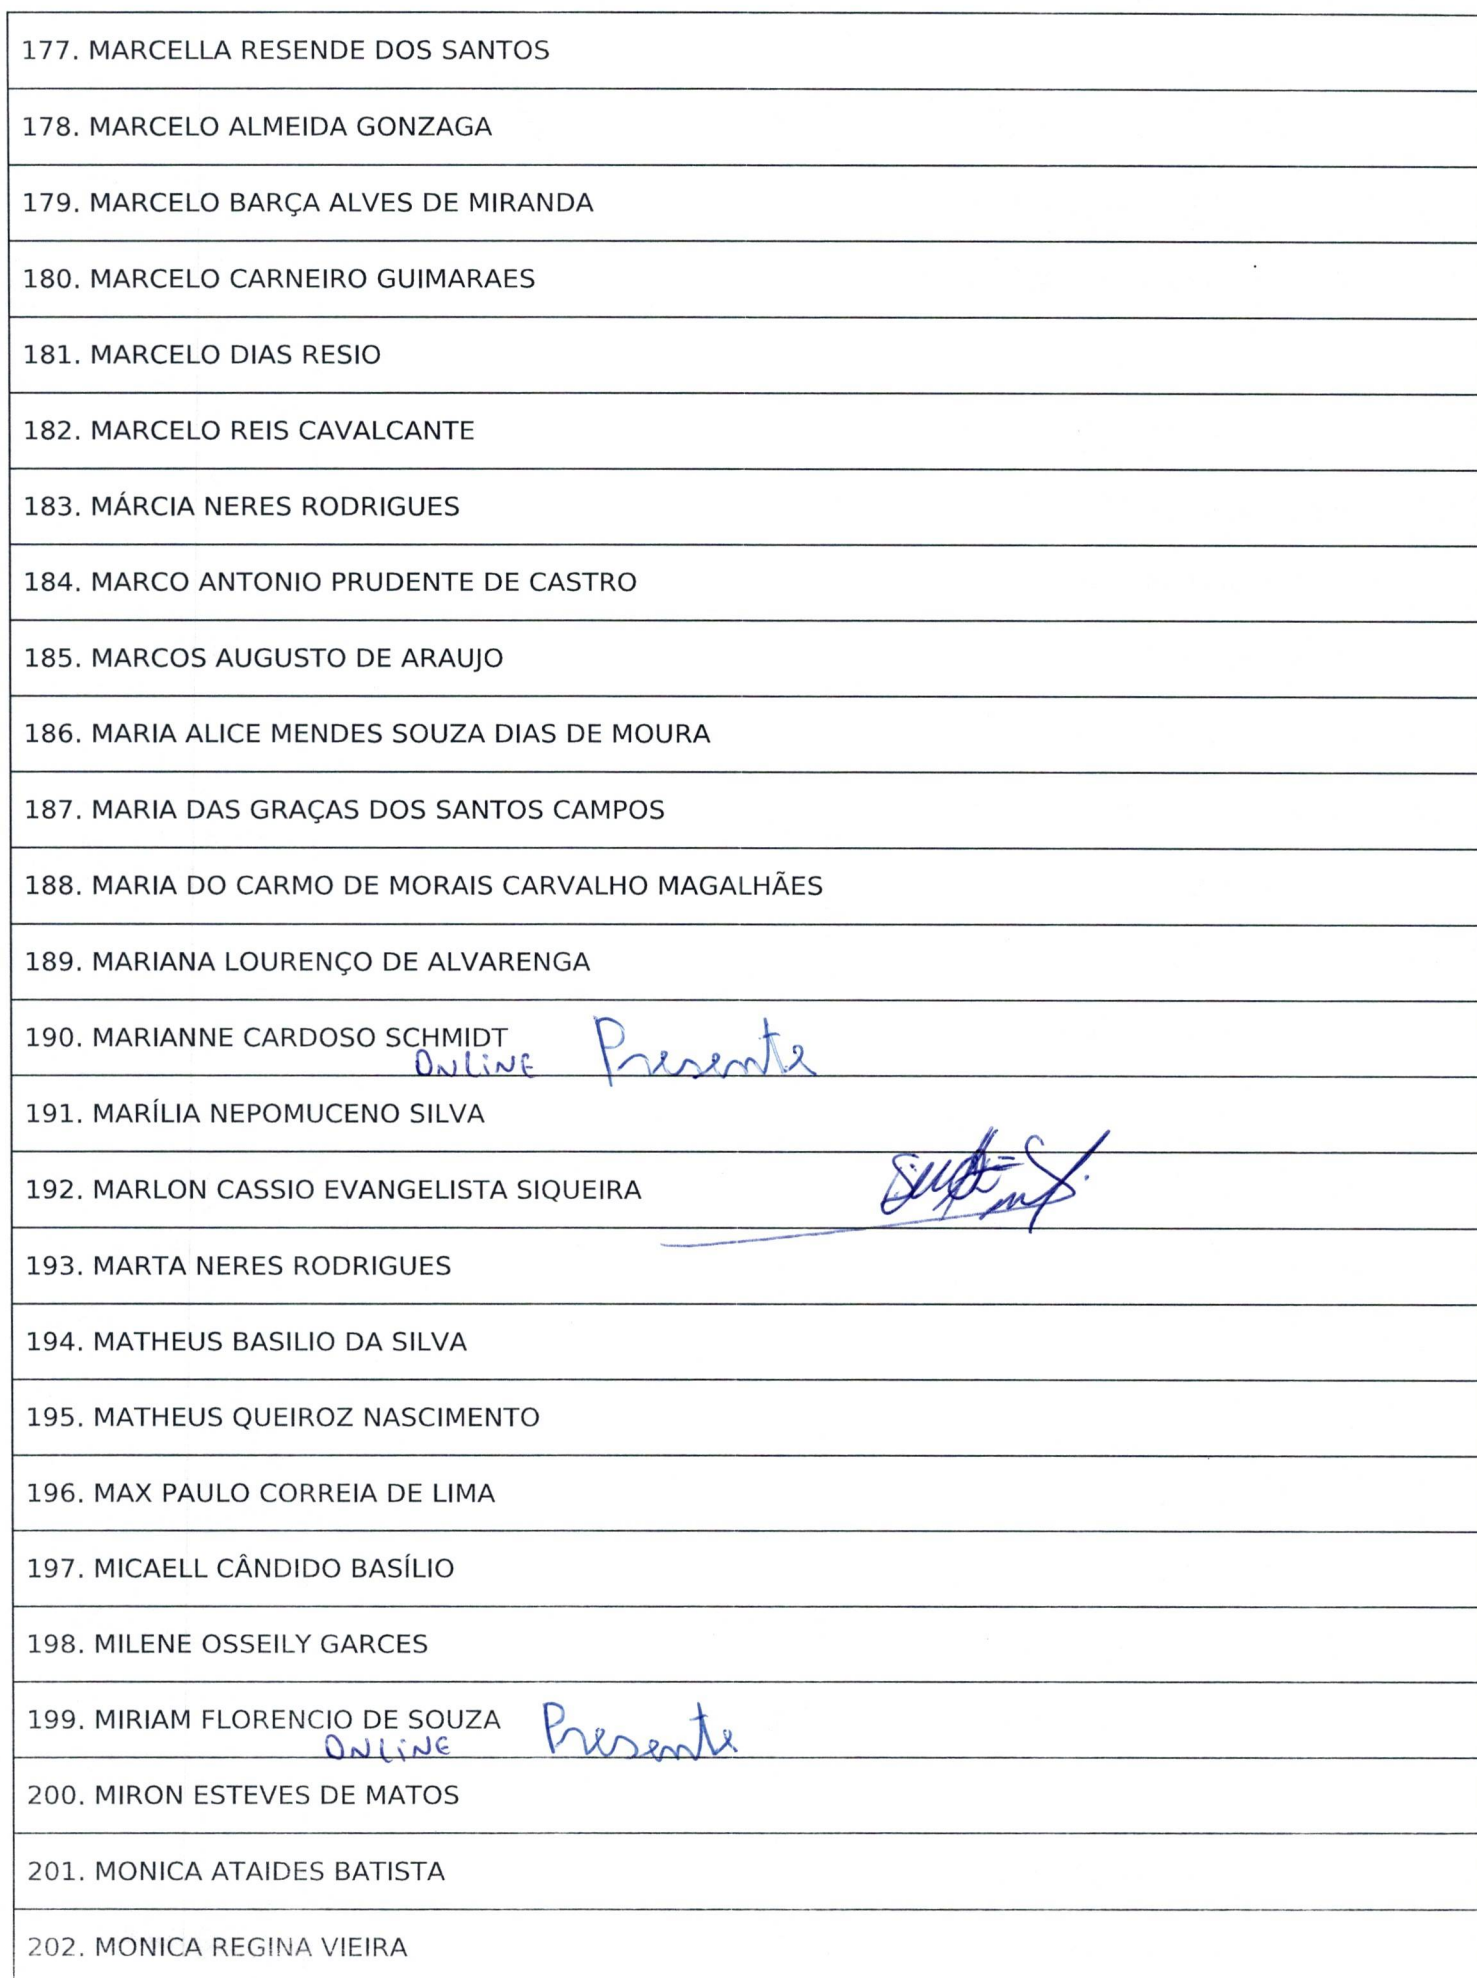 177. MARCELLA RESENDE DOS SANTOS
178. MARCELO ALMEIDA GONZAGA
179. MARCELO BARÇA ALVES DE MIRANDA
180. MARCELO CARNEIRO GUIMARAES
181. MARCELO DIAS RESIO
182. MARCELO REIS CAVALCANTE
183. MÁRCIA NERES RODRIGUES
184. MARCO ANTONIO PRUDENTE DE CASTRO
185. MARCOS AUGUSTO DE ARAUJO
186. MARIA ALICE MENDES SOUZA DIAS DE MOURA
187. MARIA DAS GRAÇAS DOS SANTOS CAMPOS
188. MARIA DO CARMO DE MORAIS CARVALHO MAGALHÃES
189. MARIANA LOURENÇO DE ALVARENGA
190. MARIANNE CARDOSO SCHMIDT
ONLINE Presente
191. MARÍLIA NEPOMUCENO SILVA
192. MARLON CASSIO EVANGELISTA SIQUEIRA
193. MARTA NERES RODRIGUES
194. MATHEUS BASILIO DA SILVA
195. MATHEUS QUEIROZ NASCIMENTO
196. MAX PAULO CORREIA DE LIMA
197. MICAELL CÂNDIDO BASÍLIO
198. MILENE OSSEILY GARCES
199. MIRIAM FLORENCIO DE SOUZA
ONLINE Presente
200. MIRON ESTEVES DE MATOS
201. MONICA ATAIDES BATISTA
202. MONICA REGINA VIEIRA